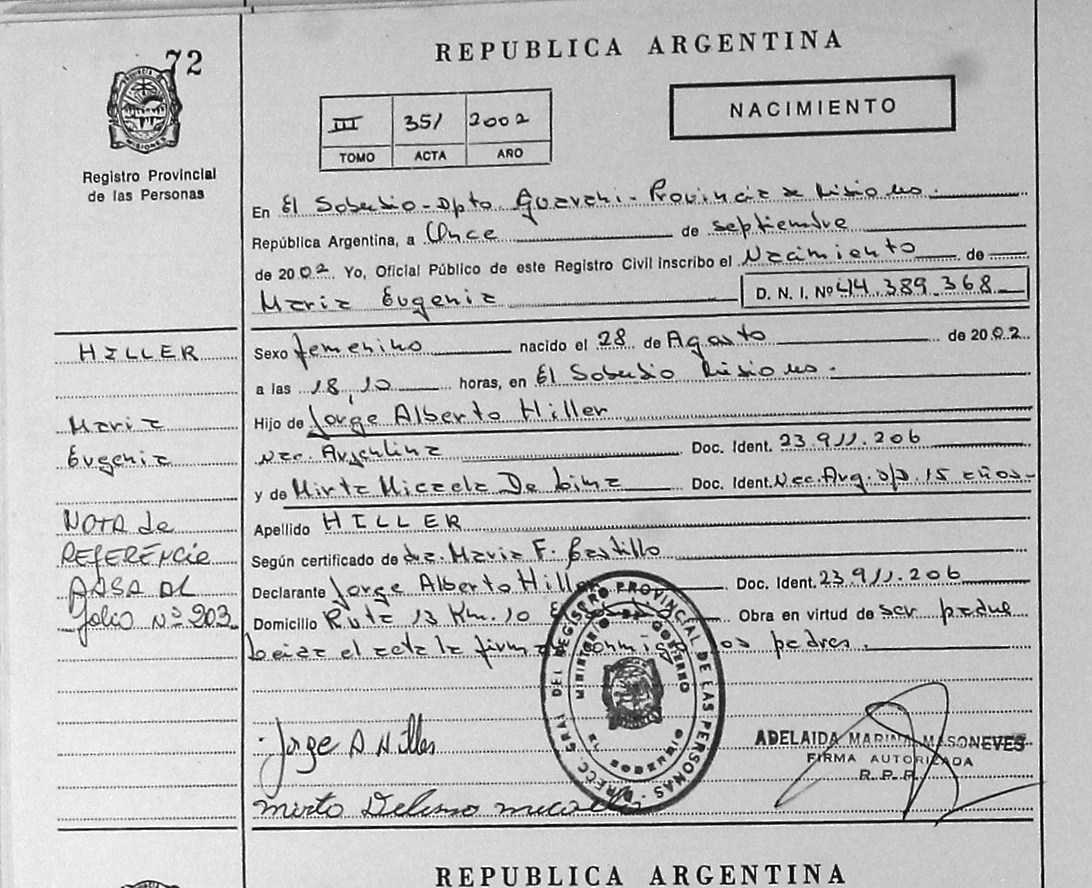 72
REPUBLICA ARGENTINA
PROVINCIA DE MISIONES
Registro Provincial
de las Personas
III 351 2002
TOMO ACTA AÑO
NACIMIENTO
En El Soberbio - Dpto Guarani - Provincia de Misiones.
República Argentina, a Once de septiembre
de 2002 Yo, Oficial Público de este Registro Civil inscribo el Nacimiento de
Maria Eugenia D. N. I. Nº 44.389.368
HILLER
Sexo femenino nacido el 28 de Agosto de 2002
a las 18,10 horas, en El Soberbio Misiones.
Maria
Hijo de Jorge Alberto Hiller
Eugenia
Nac. Argentina Doc. Ident. 23.911.206
y de Mirta Micaela De Lima Doc. Ident. Nac. Arg. s/d. 15 años
NOTA de
Apellido HILLER
REFERENCIA
Según certificado de dra. Maria F. Castillo
PASA AL
Declarante Jorge Alberto Hiller Doc. Ident. 23.911.206
folio Nº 203
Domicilio Ruta 13 Km. 10 Obra en virtud de ser padre
el acta la firma conmigo los padres.
DIRECC. GRAL. DEL REGISTRO PROVINCIAL DE LAS PERSONAS
MINISTERIO DE GOBIERNO
EL SOBERBIO
Jorge A Hiller
ADELAIDA MARINA MASONEVES
FIRMA AUTORIZADA
R. P. P.
REPUBLICA ARGENTINA